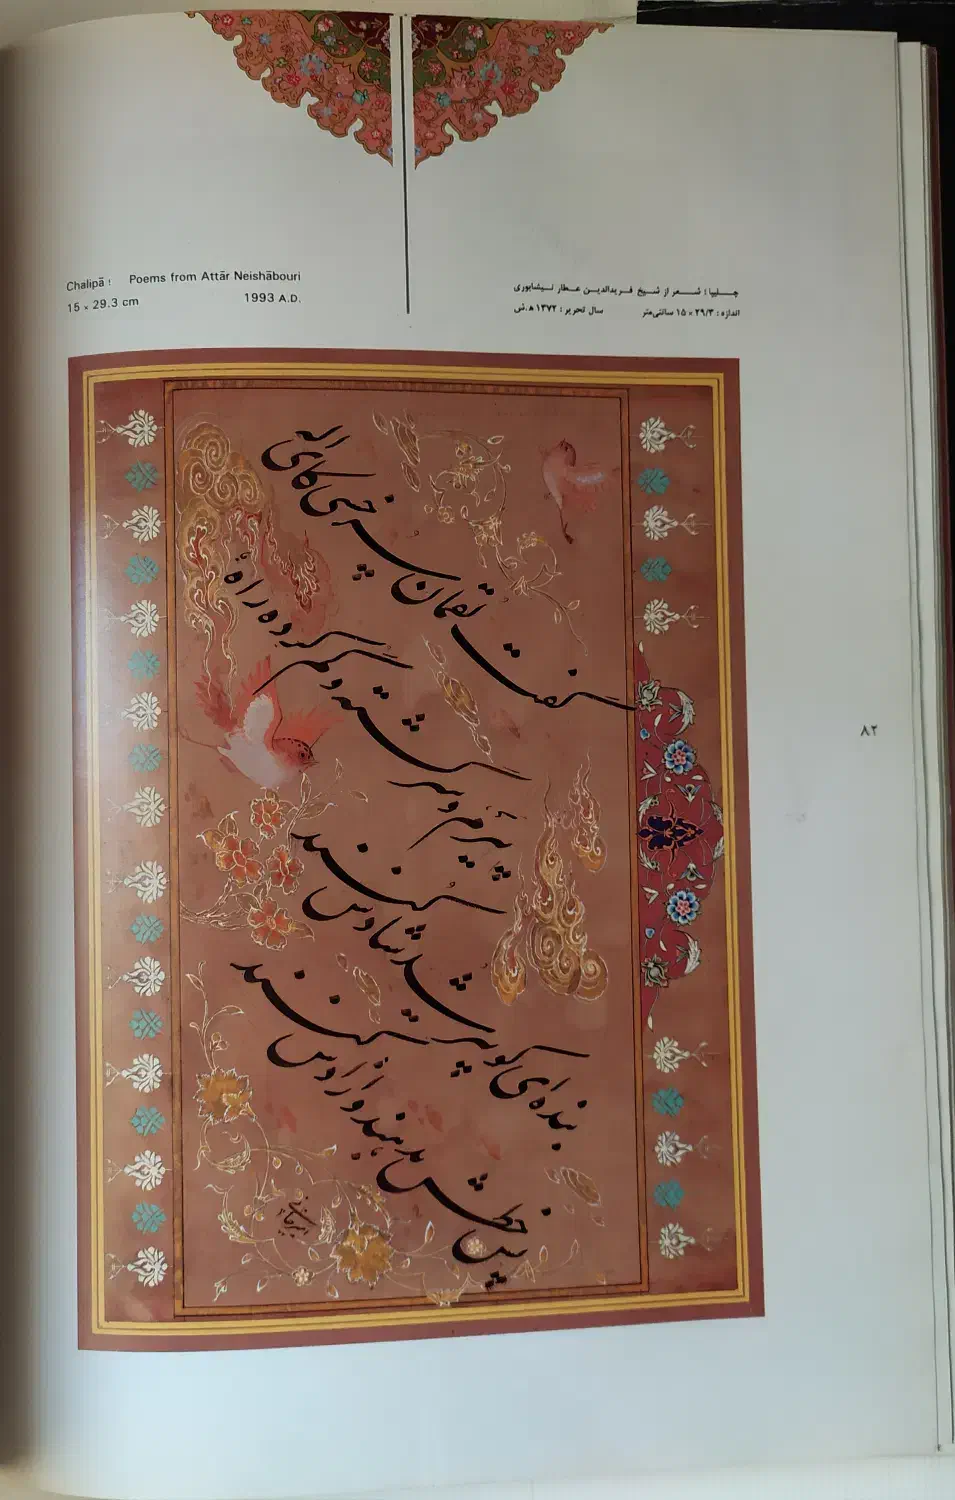 Chalipā : Poems from Attār Neishābouri
15 × 29.3 cm 1993 A.D.
چـلیپا ؛ شـعر از شـیخ فـریدالدین عـطار نـیشابوری
اندازه : ۲۹/۳ × ۱۵ سانتی‌متر سال تحریر : ۱۳۷۲ ه‍.ش
گفت لقمان سرخسی کای اله
پیرم و سرگشته و گم کرده راه
بنده‌ای کو پیر شد شادش کنند
پس خطش بدهند و آزادش کنند
امیرخانی
۸۲